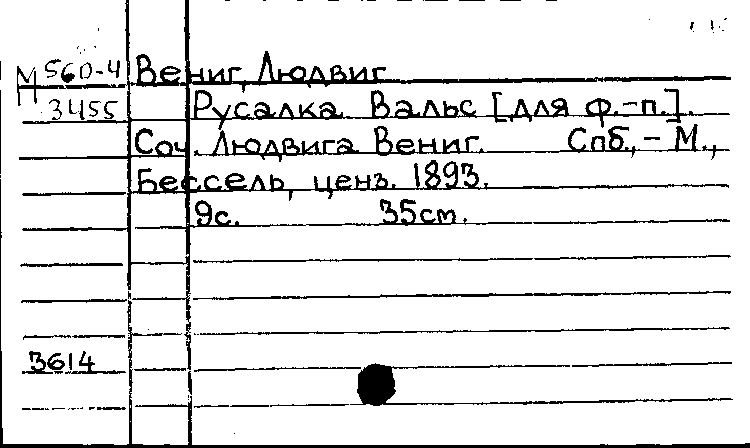 М 560-4 Вениг, Людвиг
3455 Русалка. Вальс [для ф.-п.].
Соч. Людвига Вениг. Спб., – М.,
Бессель, ценз. 1893.
9с. 35см.
3614